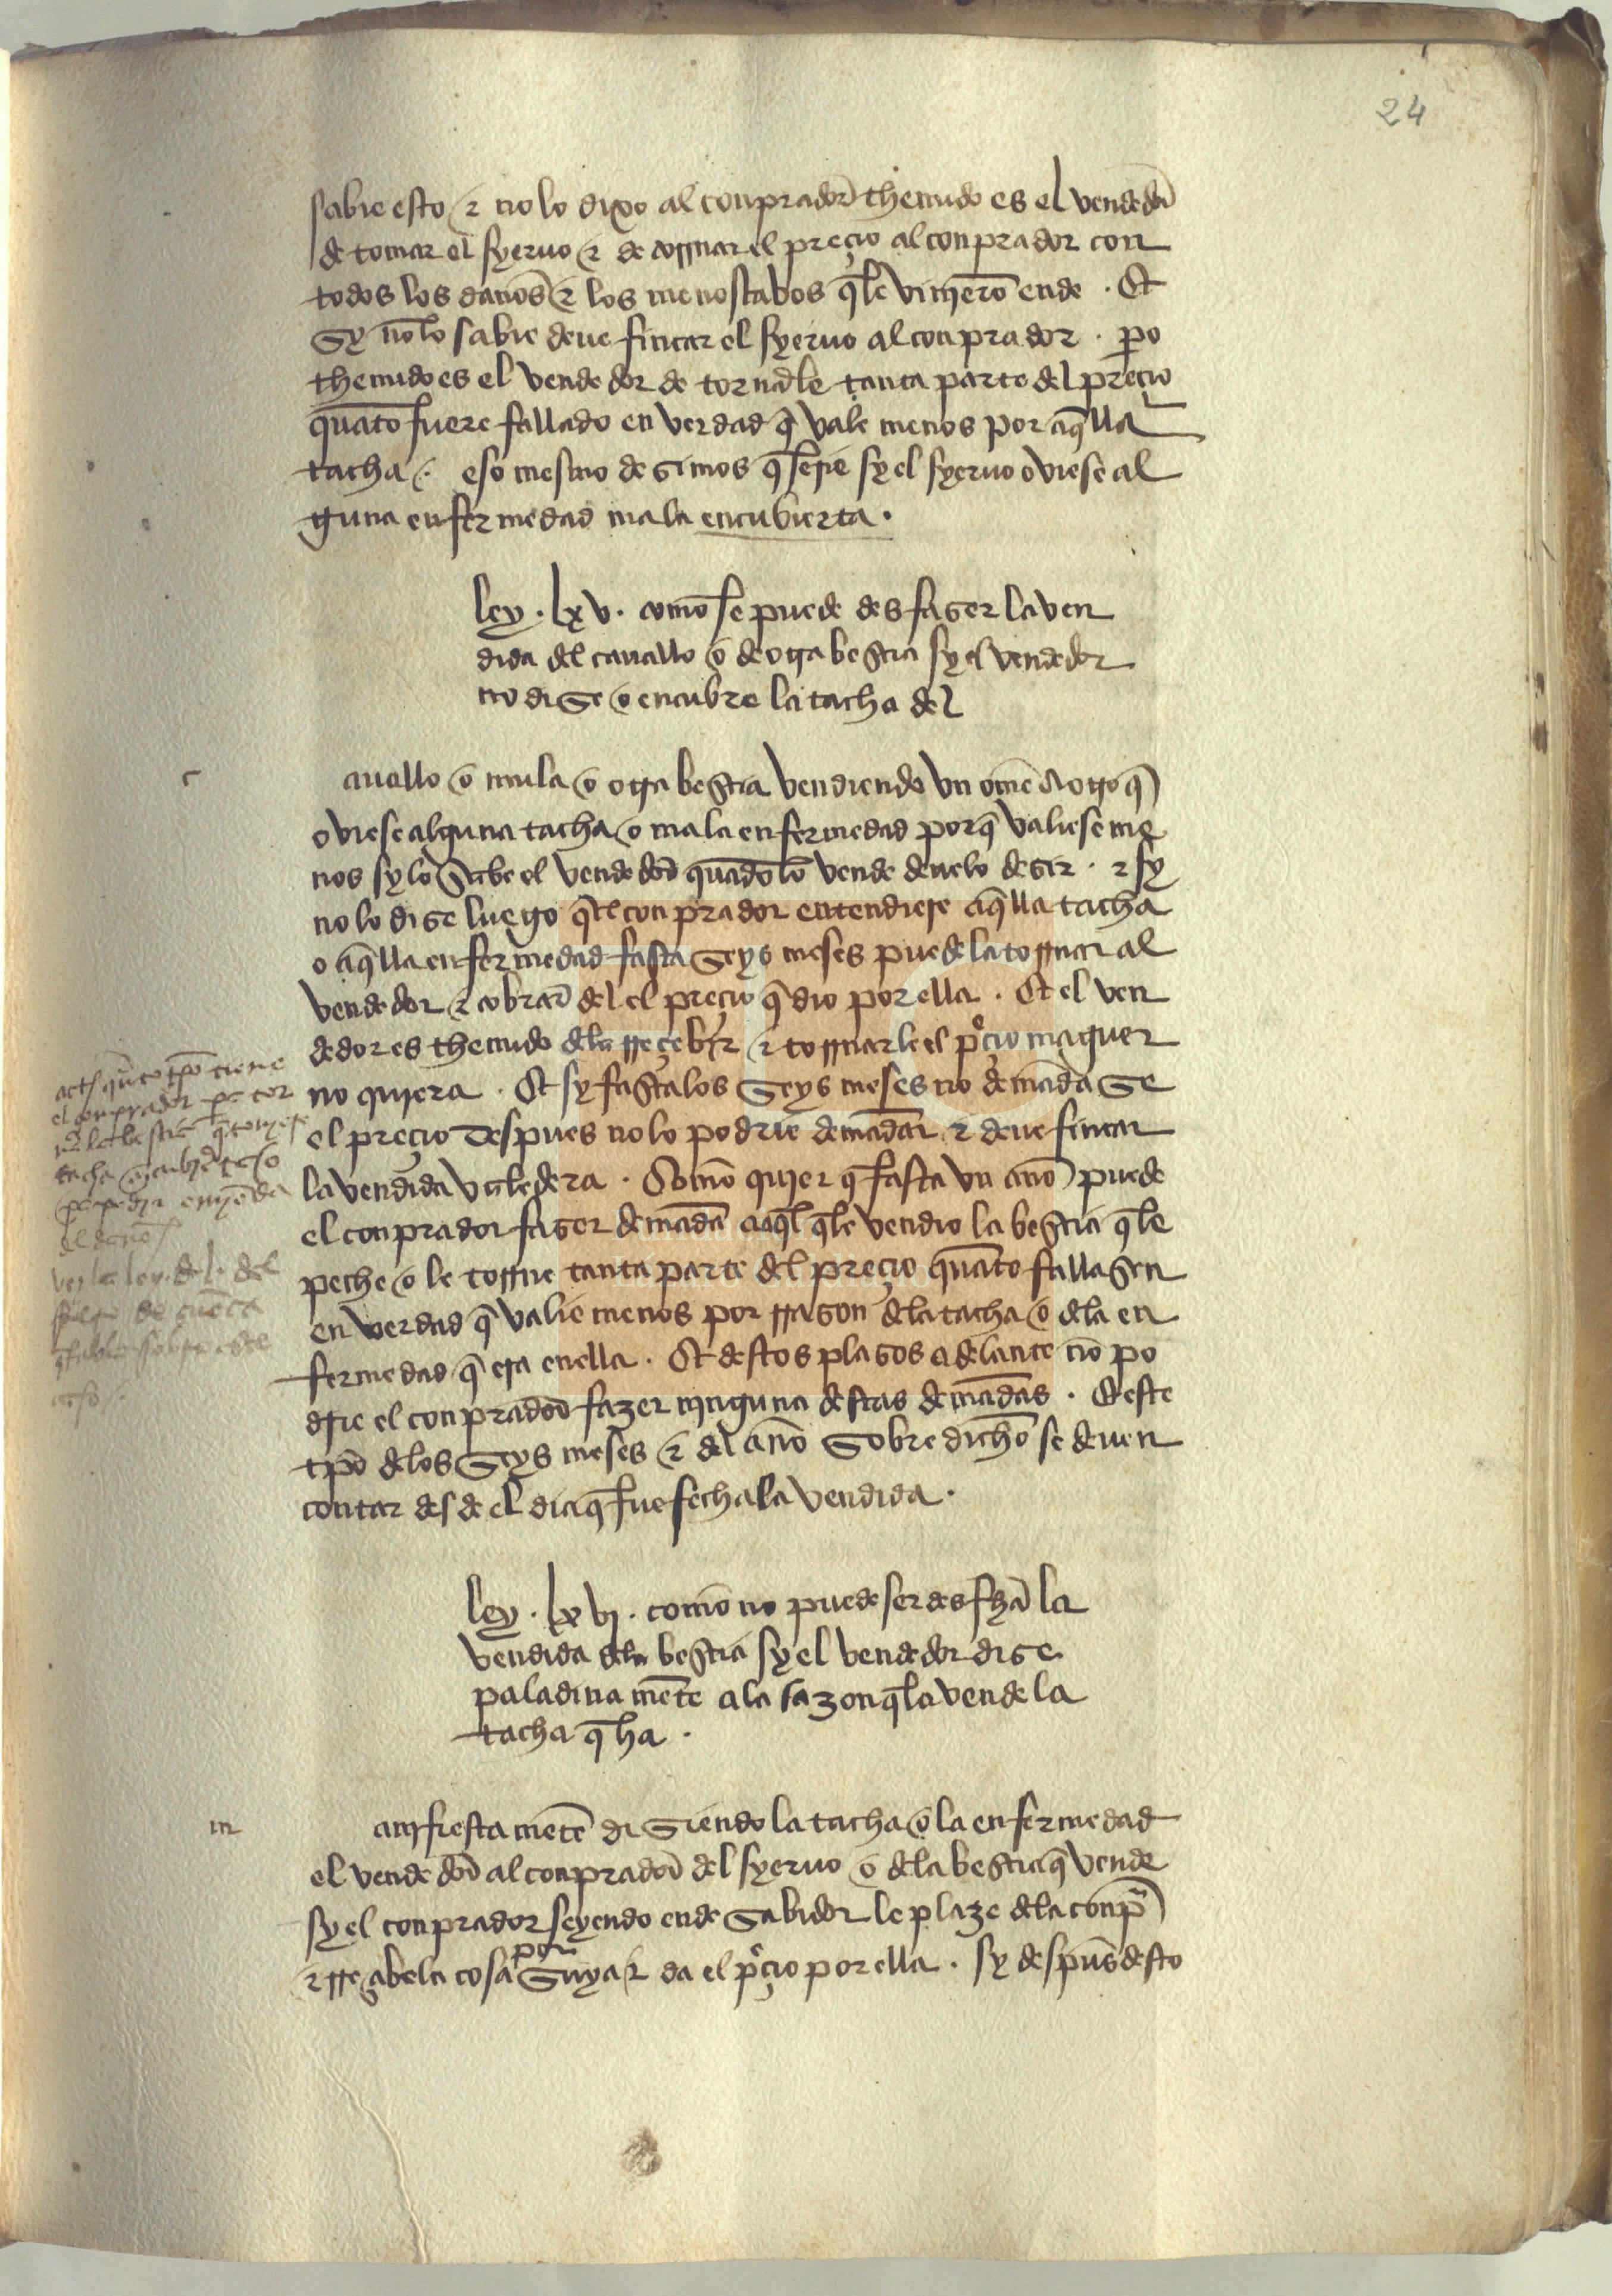 24
sabie esto & no lo dixo al conprador thenudo es el vendedor
de tomar el syeruo & de tornar el preçio al conprador con
todos los danõs & los menoscabos q̃le vinierõ ende . Et
Sy nõlo sabie deue fincar el syeruo al conprador . po
thenudo es el vendedor de tornarle tanta parte del preçio
quãto fuere fallado en verdad q̃ vale menos por aq̃lla
tacha . eso mesmo desimos q̃ serie sy el syeruo oviese al
guna enfermedad mala encubierta .
ley . lxv . comõ se puede desfaser la ven
dida del cauallo o de otra bestia sy el vendedor
no dise o encubre la tacha del
c
auallo o mula o otra bestia vendiendo vn omẽ a otro q̃
oviese alguna tacha o mala enfermedad porq̃ valiese me
nos sy lo sabe el vendedor quãdo lo vende deuelo desir . & sy
no lo dise luego q̃ el conprador entendiere aq̃lla tacha
o aq̃lla enfermedad fasta seys meses puedela tornar al
vendedor & cobrar del el preçio q̃ dio por ella . Et el ven
dedor es thenudo dela rreçebir & tornarle el pçio maguer
no quiera . Et sy fasta los seys meses no demãdase
el preçio despues no lo podrie demãdar & deue fincar
la vendida valedera . Comõ quier q̃ fasta vn anõ puede
el conprador faser demãda a aq̃l q̃le vendio la bestia q̃le
peche o le torne tanta parte del preçio quãto fallasen
en verdad q̃ valie menos por rrason dela tacha o dela en
fermedad q̃ era enella . Et destos plasos adelante nõ po
drie el conprador fazer ninguna destas demãdas . Et este
tpõ delos seys meses & del anõ sobredichõ se deuen
contar desde el dia q̃ fue fecha la vendida .
el conprador
tacha
ley . lxvi . comõ no puede ser desfhã la
vendida dela bestia sy el vendedor dise
paladinamẽte a la sazon q̃la vende la
tacha q̃ ha .
m
anifiestamẽte disiendo la tacha o la enfermedad
el vendedor al conprador del syeruo o dela bestia q̃ vende
sy el conprador seyendo ende sabidor le plaze dela conpa
& rreçabe la cosa por suya & da el pçio por ella . sy despues desto